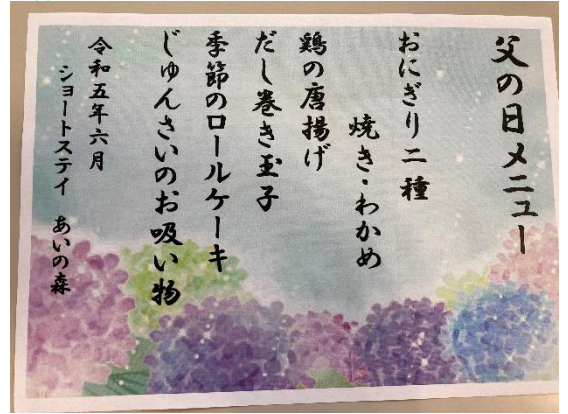 父の日メニュー
おにぎり二種
焼き・わかめ
鶏の唐揚げ
だし巻き玉子
季節のロールケーキ
じゅんさいのお吸い物
令和五年六月
ショートステイ あいの森